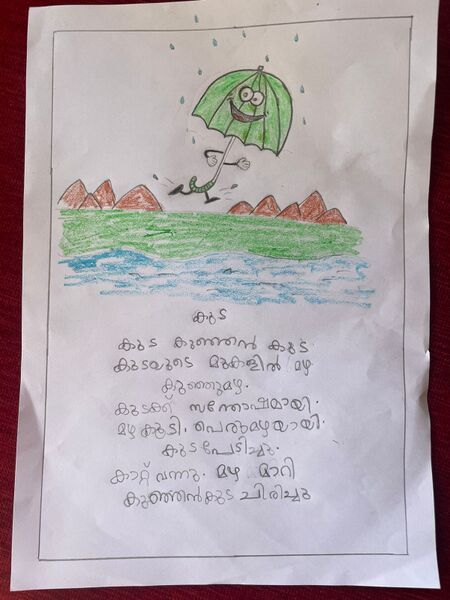 കുട
കുട കുഞ്ഞൻ കുട
കുടയുടെ മുകളിൽ മഴ
കുഞ്ഞുമഴ.
കുടക്ക് സന്തോഷമായി.
മഴ കൂടി. പെരുമഴയായി.
കുട പേടിച്ചു.
കാറ്റ് വന്നു. മഴ മാറി
കുഞ്ഞൻകുട ചിരിച്ചു